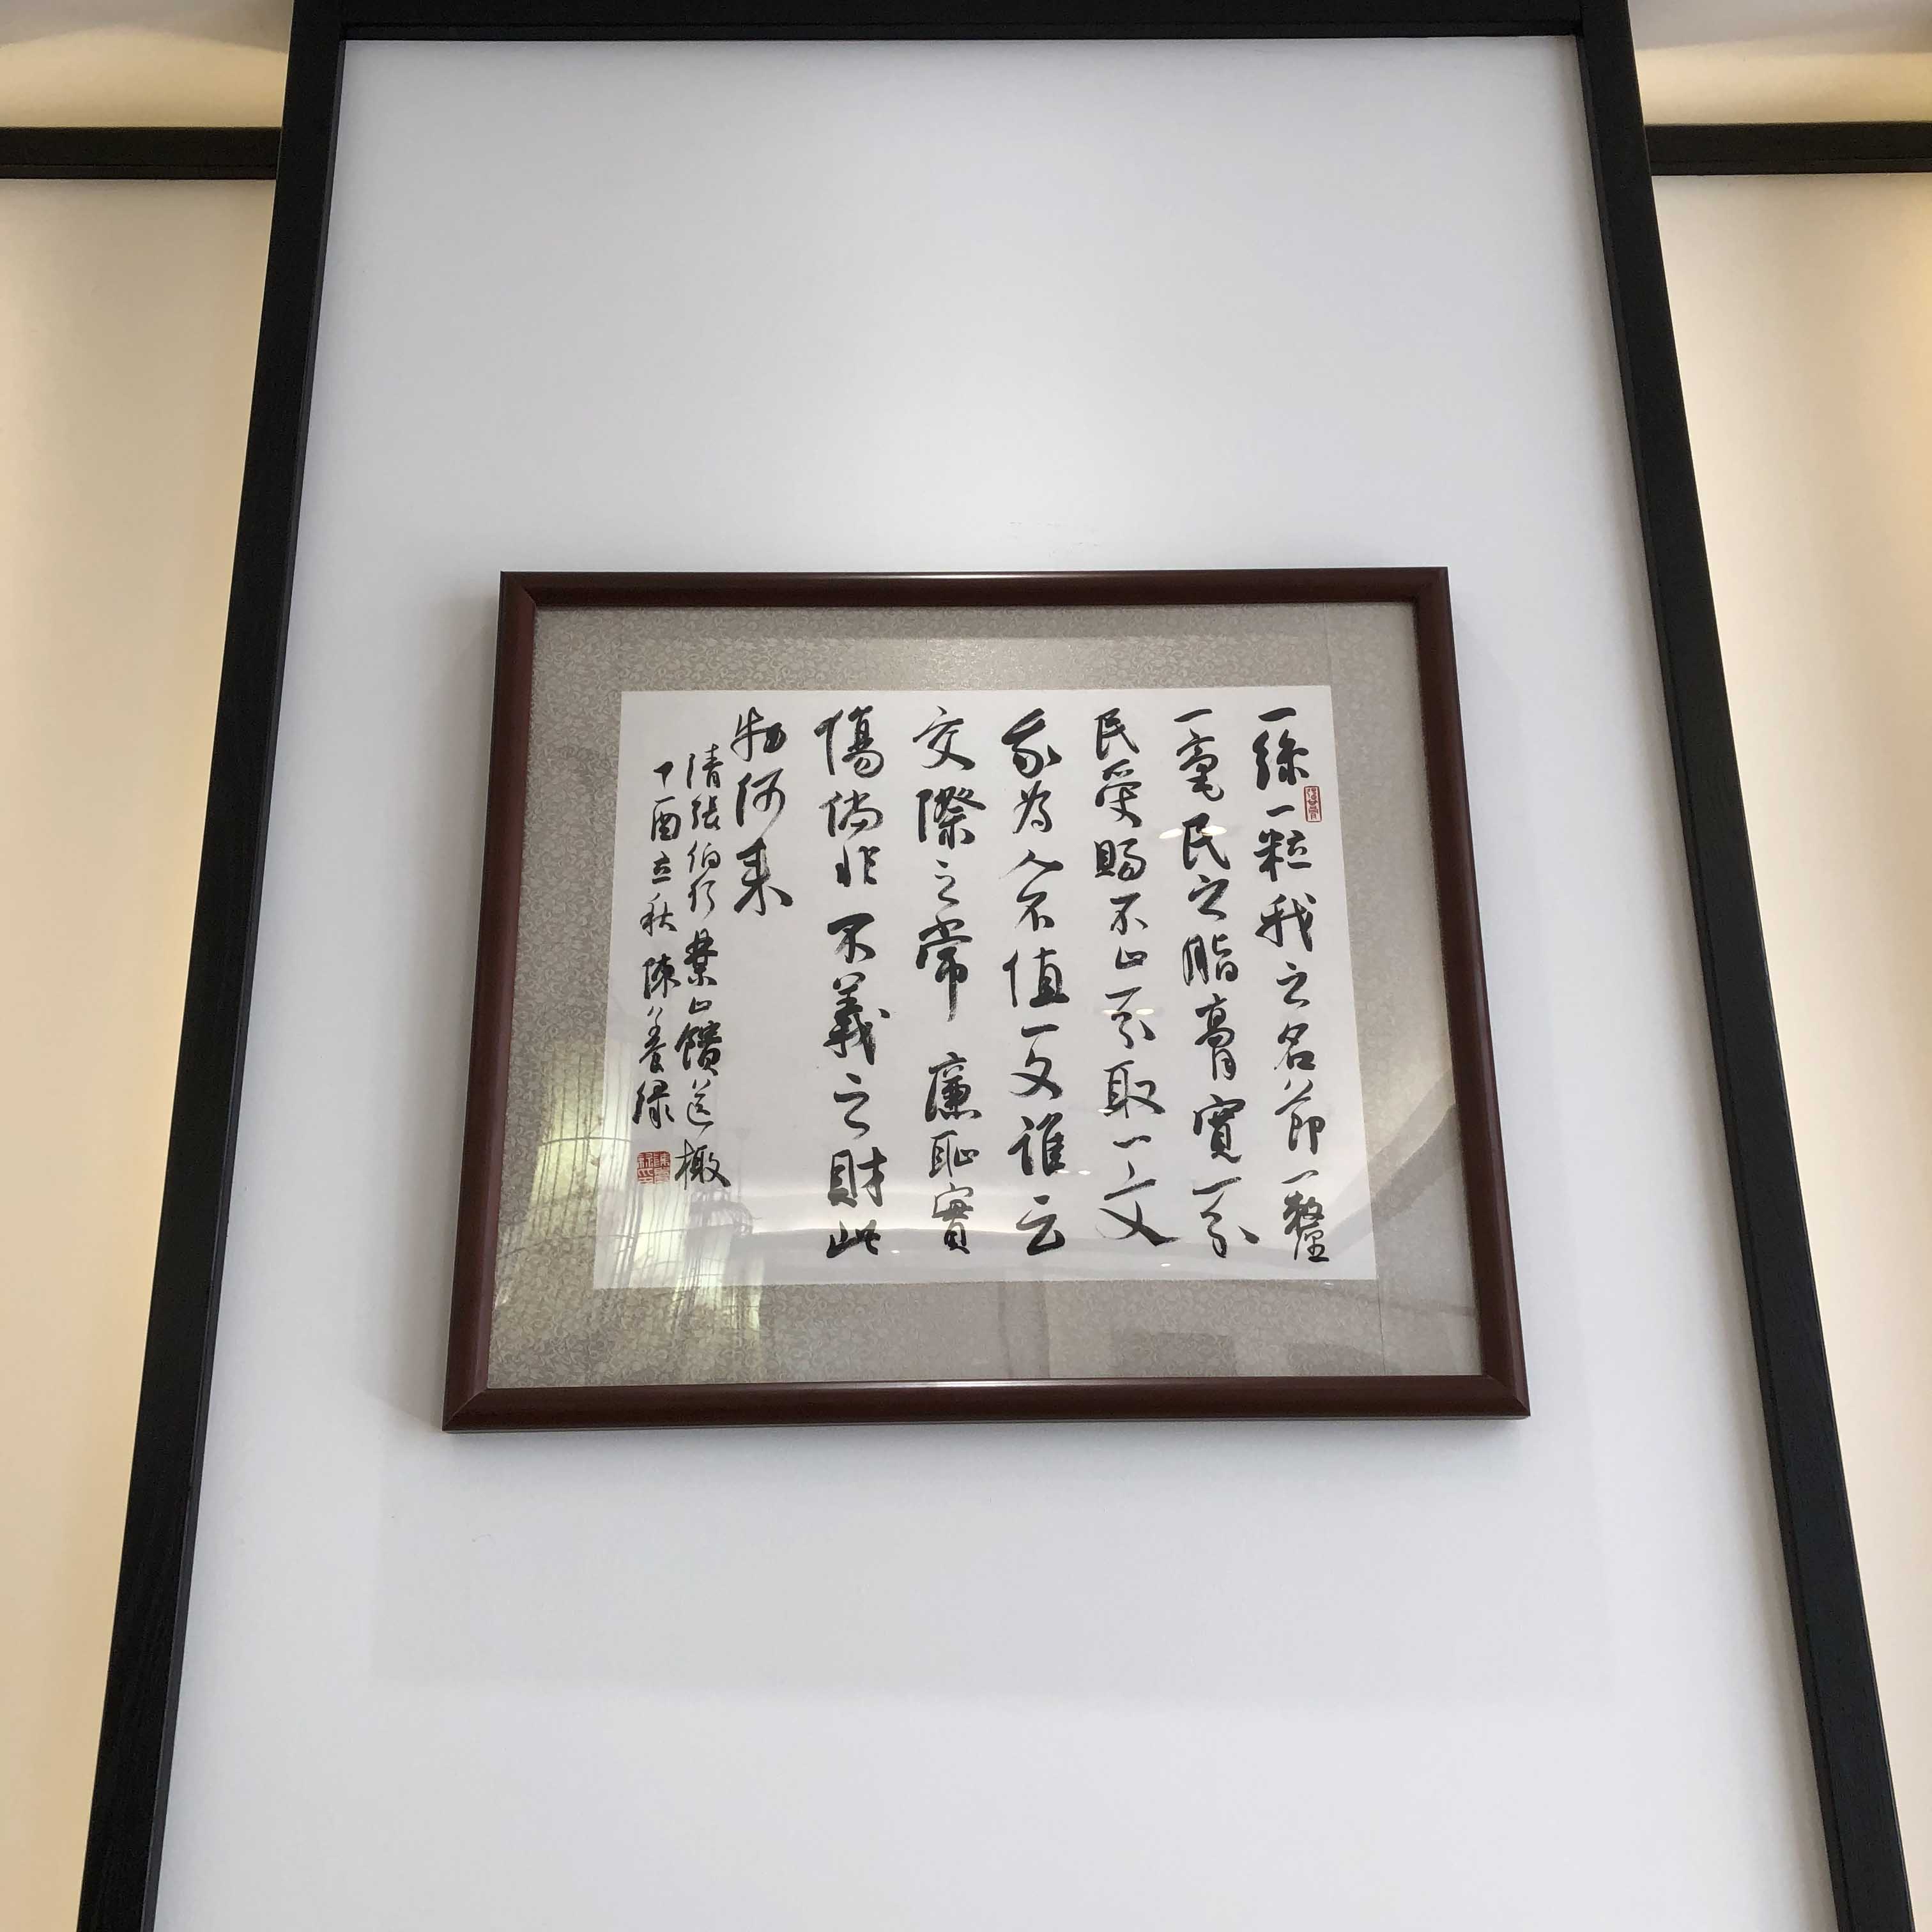 一絲一粒我之名節一釐
一毫民之脂膏寬一分
民受賜不止一分取一文
我為人不值一文誰云
交際之常廉耻實
傷倘非不義之財此
物何来
清張伯行禁止饋送檄
丁酉立秋陳養